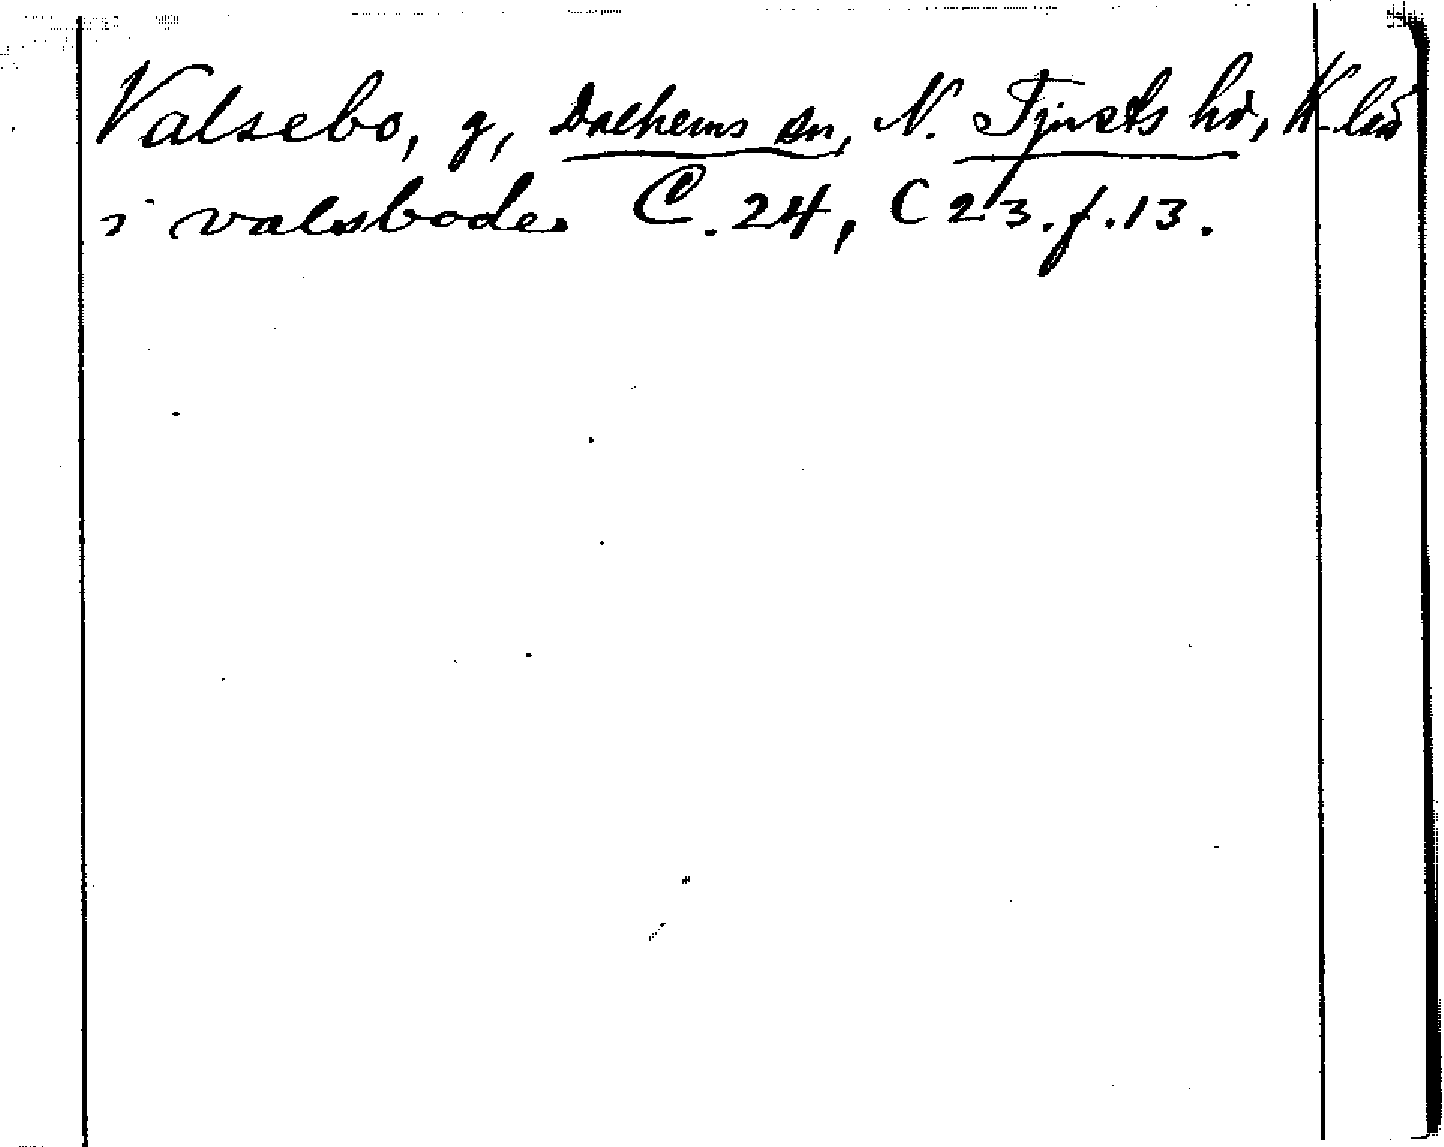 Valsebo, g, Dalhems sn, N. Tjusts hd, K-län
i valsbode. C. 24, C 23. f. 13.